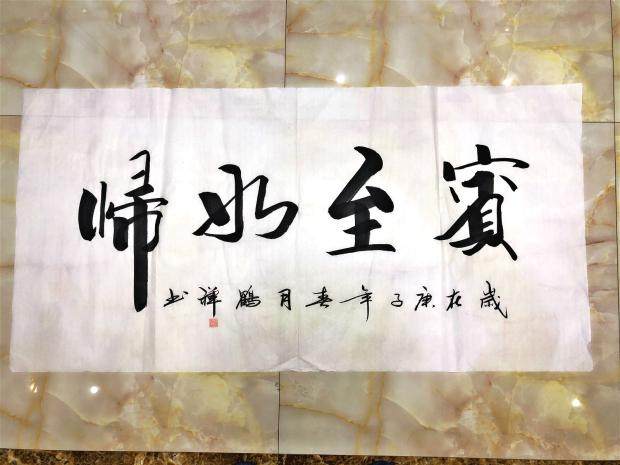 賓至如歸
歲在庚子年春月鶴祥书